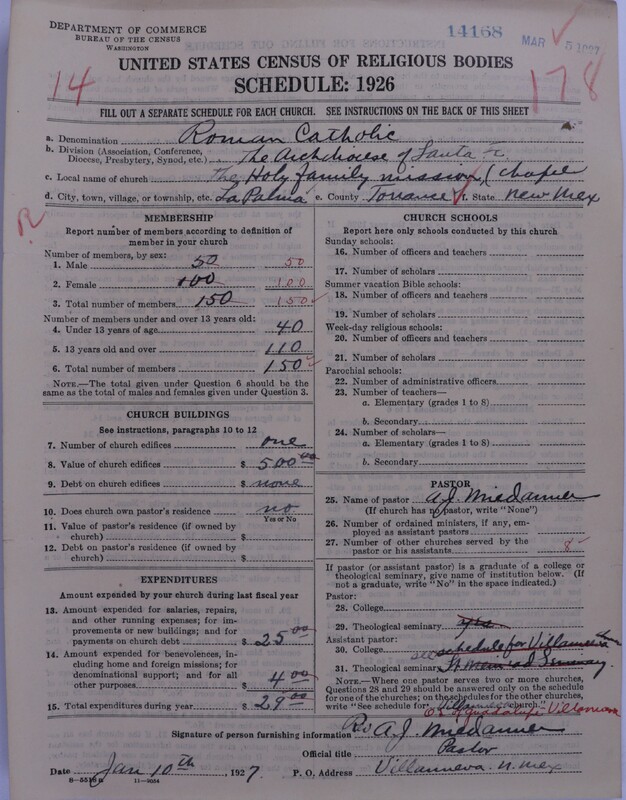 DEPARTMENT OF COMMERCE
BUREAU OF THE CENSUS
WASHINGTON
14168
MAR 5 1927
UNITED STATES CENSUS OF RELIGIOUS BODIES
SCHEDULE: 1926
14
178
FILL OUT A SEPARATE SCHEDULE FOR EACH CHURCH. SEE INSTRUCTIONS ON THE BACK OF THIS SHEET
a. Denomination Roman Catholic
b. Division (Association, Conference,
Diocese, Presbytery, Synod, etc.) The Archdiocese of Santa Fe
c. Local name of church The Holy family mission (chapel
d. City, town, village, or township, etc. La Palma e. County Torrance f. State New Mex
R
MEMBERSHIP
Report number of members according to definition of
member in your church
Number of members, by sex:
1. Male 50 50
2. Female 100 100
3. Total number of members 150 150
Number of members under and over 13 years old:
4. Under 13 years of age 40
5. 13 years old and over 110
6. Total number of members 150
NOTE.—The total given under Question 6 should be
the same as the total of males and females given under Question 3.
CHURCH BUILDINGS
See instructions, paragraphs 10 to 12
7. Number of church edifices one
8. Value of church edifices $ 500 00
9. Debt on church edifices $ none
10. Does church own pastor's residence no
Yes or No
11. Value of pastor's residence (if owned by
church) $
12. Debt on pastor's residence (if owned by
church) $
EXPENDITURES
Amount expended by your church during last fiscal year
13. Amount expended for salaries, repairs,
and other running expenses; for im-
provements or new buildings; and for
payments on church debt $ 25 00
14. Amount expended for benevolences, in-
cluding home and foreign missions; for
denominational support; and for all
other purposes $ 4 00
15. Total expenditures during year $ 29 00
CHURCH SCHOOLS
Report here only schools conducted by this church
Sunday schools:
16. Number of officers and teachers
17. Number of scholars
Summer vacation Bible schools:
18. Number of officers and teachers
19. Number of scholars
Week-day religious schools:
20. Number of officers and teachers
21. Number of scholars
Parochial schools:
22. Number of administrative officers
23. Number of teachers—
a. Elementary (grades 1 to 8)
b. Secondary
24. Number of scholars—
a. Elementary (grades 1 to 8)
b. Secondary
PASTOR
25. Name of pastor A.J. Miedanner
(If church has no pastor, write "None")
26. Number of ordained ministers, if any, em-
ployed as assistant pastors
27. Number of other churches served by the
pastor or his assistants 8
If pastor (or assistant pastor) is a graduate of a college or
theological seminary, give name of institution below. (If
not a graduate, write "No" in the space indicated.)
Pastor:
28. College
29. Theological seminary yes
Assistant pastor:
30. College see schedule for Villanueva
31. Theological seminary St Meinrad Seminary
NOTE.—Where one pastor serves two or more churches,
Questions 28 and 29 should be answered only on the schedule
for one of the churches; on the schedules for the other churches,
write "See schedule for Villanueva church."
of Guadalupe Villanueva
Signature of person furnishing information Rev A.J. Miedanner
Official title Pastor
Date Jan 10th, 1927. P. O. Address Villanueva N. Mex
11—9084